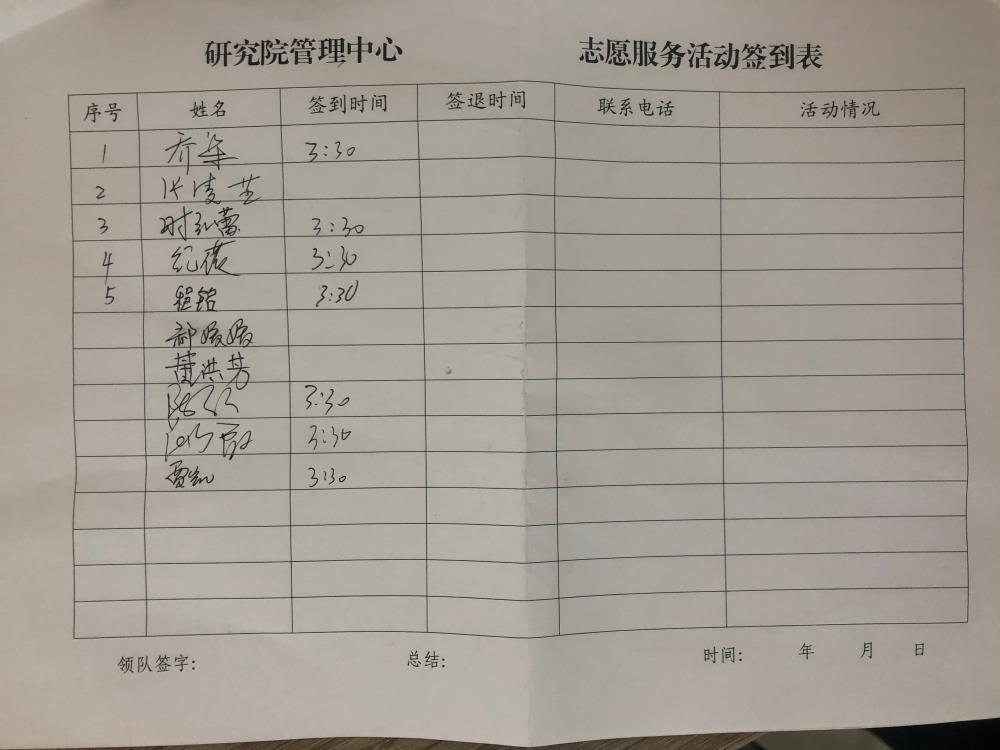 研究院管理中心 志愿服务活动签到表
序号 姓名 签到时间 签退时间 联系电话 活动情况
1 乔梁 3:30
2 张凌芝
3 时 蕾 3:30
4 纪薇 3:30
5 程铭 3:30
郝媛媛
董洪芳
3:30
3:30
贾凯 3:30
领队签字: 总结: 时间: 年 月 日